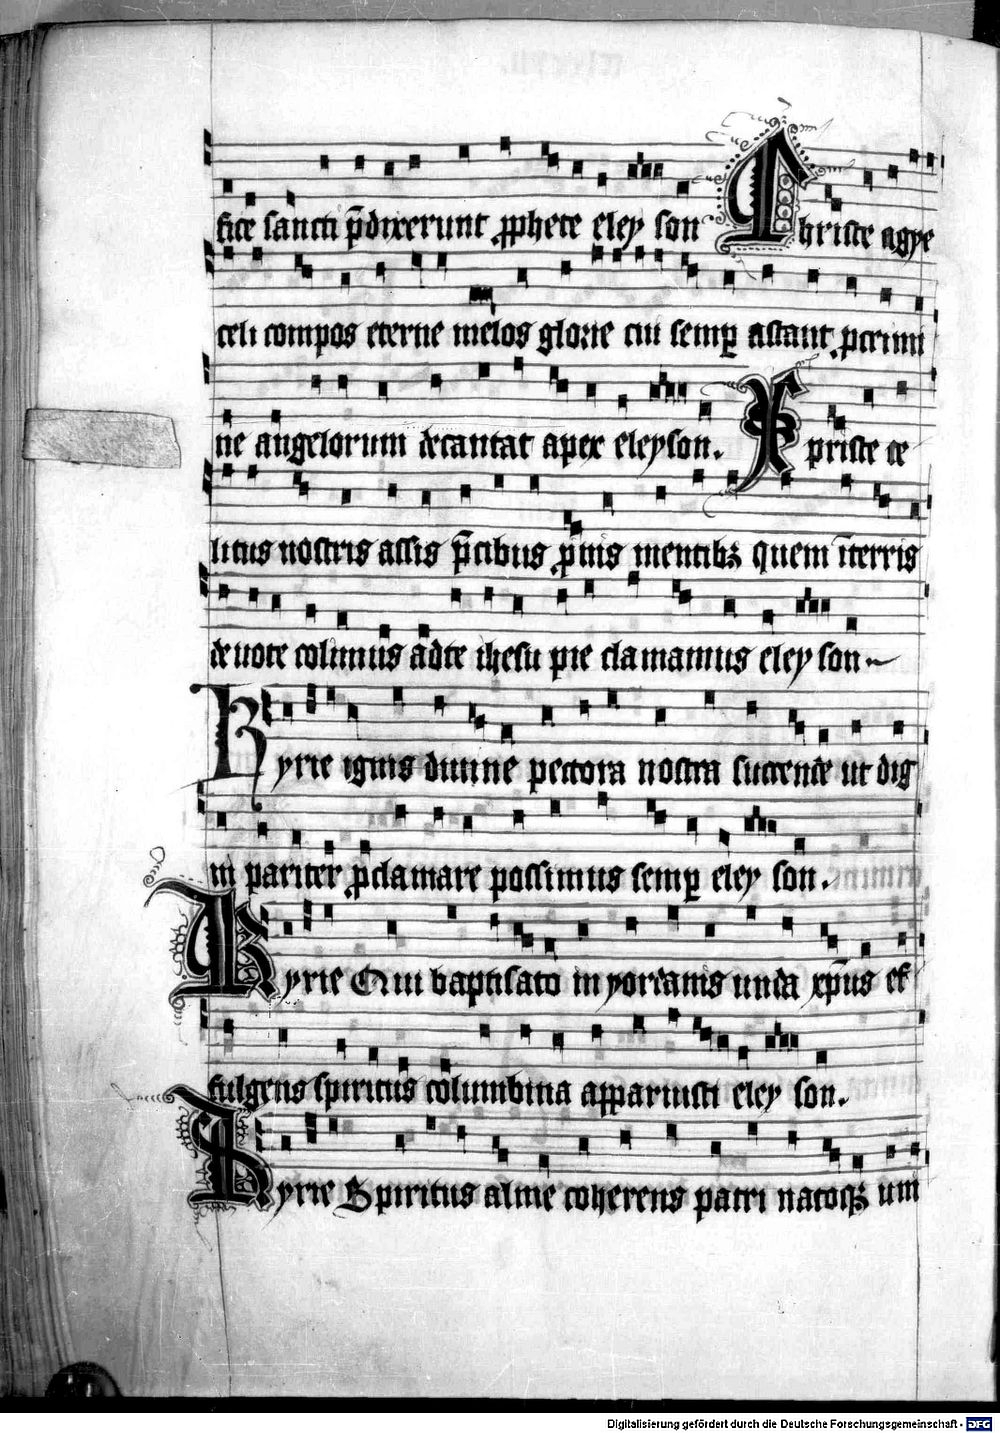 fice sancti p̄dixerunt ꝓphete eley son Christe agye
celi compos eterne melos glorie cui semꝑ astant ꝑ crimi
ne angelorum decantat apex eleyson. Xpriste ce
litus nostris assis p̄cibus ꝓnis mentibꝫ quem īterris
deuote colimus ad te ihesu pie clamamus eley son
Kyrie ignis diuine pectora nostra succende ut dig
ni pariter ꝓclamare possimus semꝑ eley son.
Kyrie Qui baptisato in yordanis unda xp̄us ef
fulgens spiritus columbina apparuisti eley son.
Kyrie Spiritus alme coherens patri natoqꝫ uni
Digitalisierung gefördert durch die Deutsche Forschungsgemeinschaft - DFG